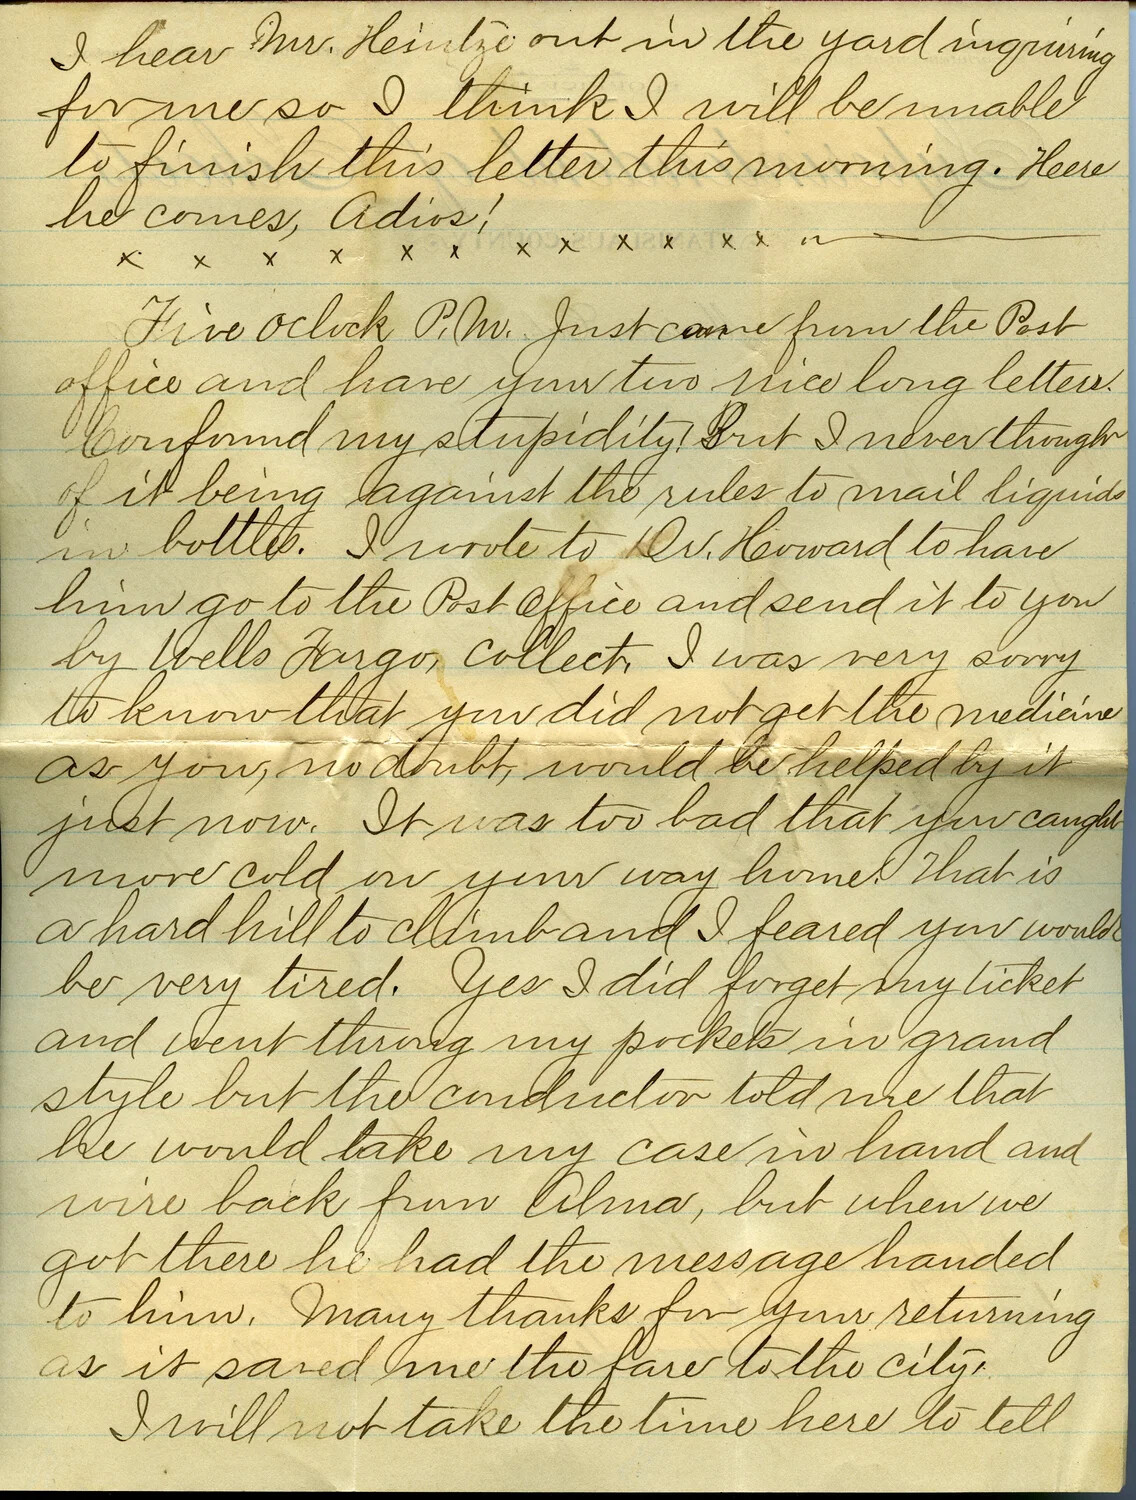 I hear Mr. Heintze out in the yard inquiring
for me so I think I will be unable
to finish this letter this morning. Heere
he comes, Adios!
x x x x x x x x x x x x
Five oclock P.M. Just came from the Post
office and have your two nice long letters.
Confound my stupidity! But I never thought
of it being against the rules to mail liquids
in bottles. I wrote to Dr. Howard to have
him go to the Post Office and send it to you
by Wells Fargo, collect. I was very sorry
to know that you did not get the medicine
as you, no doubt, would be helped by it
just now. It was too bad that you caught
more cold on your way home. That is
a hard hill to climb and I feared you would
be very tired. Yes I did forget my ticket
and went throug my pockets in grand
style but the conductor told me that
he would take my case in hand and
wire back from Alma, but when we
got there he had the message handed
to him. Many thanks for your returning
as it saved me the fare to the city.
I will not take the time here to tell